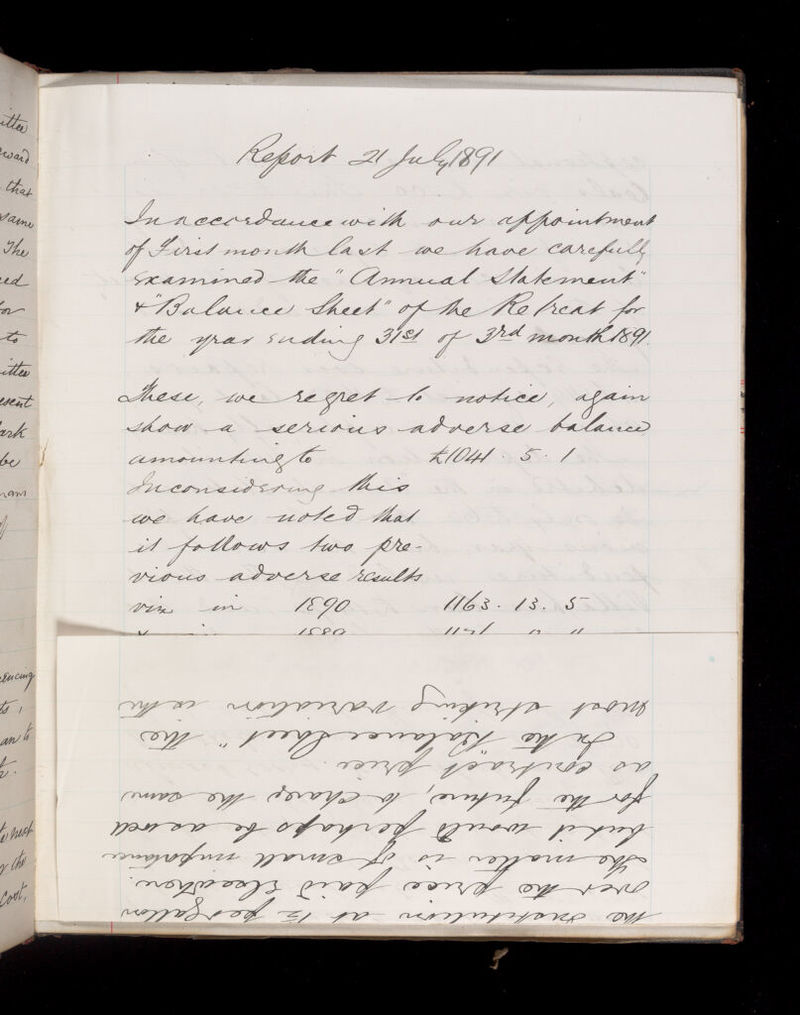 Report 21 July 1891
In accordance with our appointment
of First month last we have carefully
examined the "Annual Statement"
& "Balance Sheet" of the Retreat for
the year ending 31st of 3rd month 1891.
These, we regret to notice, again
show a serious adverse balance
amounting to £1041 . 5 . 1
In considering this
we have noted that
it follows two pre-
vious adverse results
viz in 1890 1163 . 13 . 5
the institution at 1½ per gallon
over the price paid elsewhere.
The matter is of small importance
but it would perhaps be as well
for the future, to charge the same
as contract price.
In the "Balance Sheet" the
most striking variation is the
itten
ward
that
same
The
for
to
itten
esent
ark
be
of
encing
an to
next
Cost,